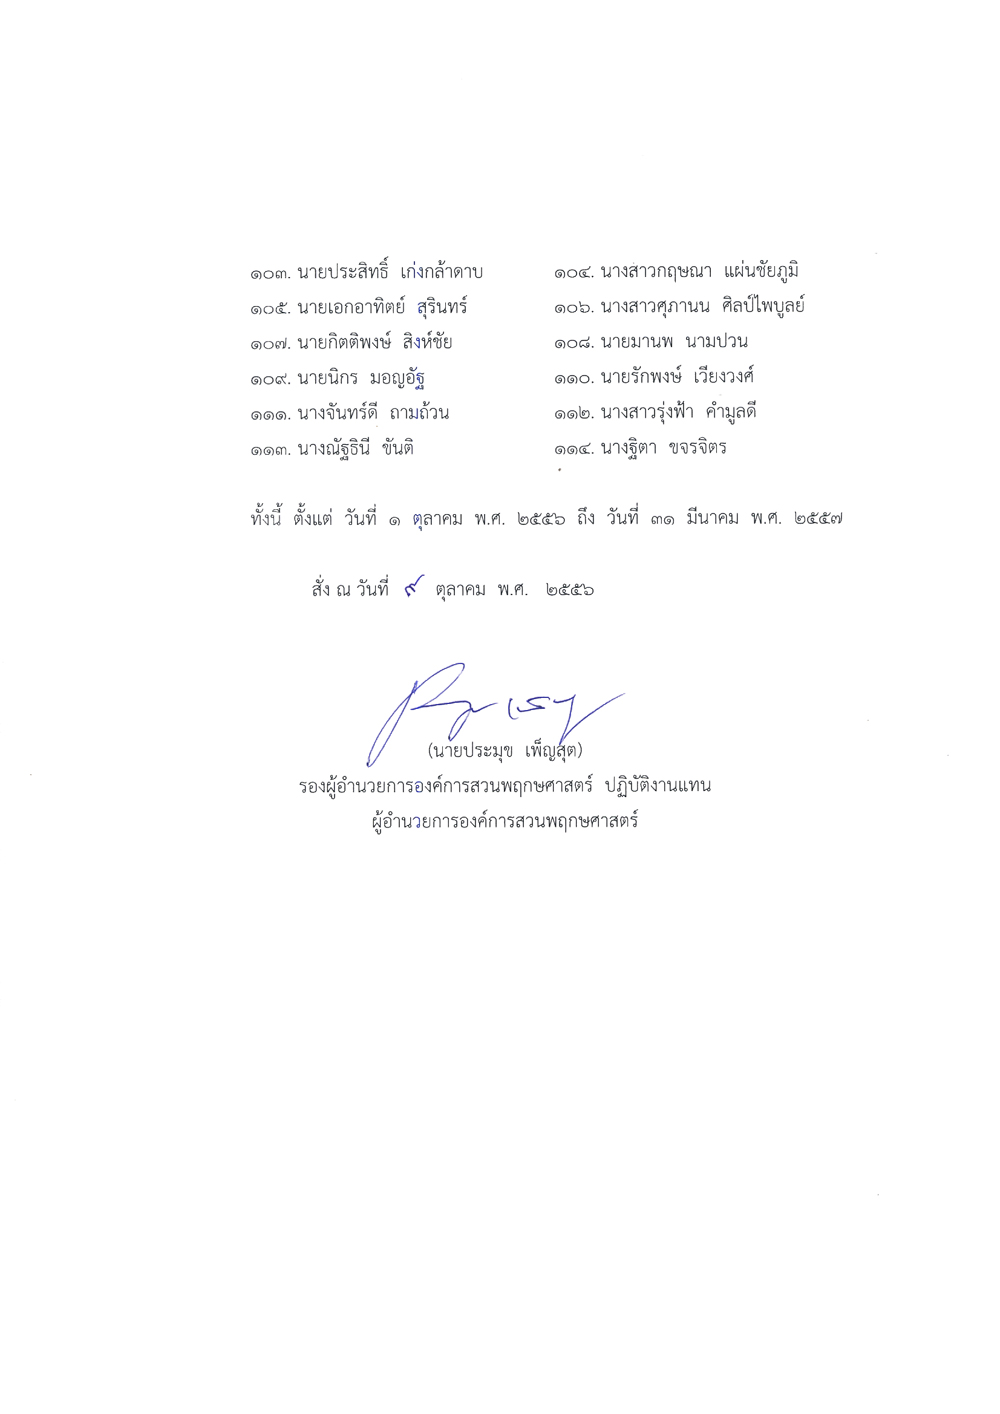 ๑๐๓. นายประสิทธิ์ เก่งกล้าดาบ ๑๐๔. นางสาวกฤษณา แผ่นชัยภูมิ
๑๐๕. นายเอกอาทิตย์ สุรินทร์ ๑๐๖. นางสาวศุภานน ศิลป์ไพบูลย์
๑๐๗. นายกิตติพงษ์ สิงห์ชัย ๑๐๘. นายมานพ นามปวน
๑๐๙. นายนิกร มอญอัฐ ๑๑๐. นายรักพงษ์ เวียงวงศ์
๑๑๑. นางจันทร์ดี ถามถ้วน ๑๑๒. นางสาวรุ่งฟ้า คำมูลดี
๑๑๓. นางณัฐธินี ขันติ ๑๑๔. นางฐิตา ขจรจิตร
ทั้งนี้ ตั้งแต่ วันที่ ๑ ตุลาคม พ.ศ. ๒๕๕๖ ถึง วันที่ ๓๑ มีนาคม พ.ศ. ๒๕๕๗
สั่ง ณ วันที่ ๙ ตุลาคม พ.ศ. ๒๕๕๖
(นายประมุข เพ็ญสุต)
รองผู้อำนวยการองค์การสวนพฤกษศาสตร์ ปฏิบัติงานแทน
ผู้อำนวยการองค์การสวนพฤกษศาสตร์